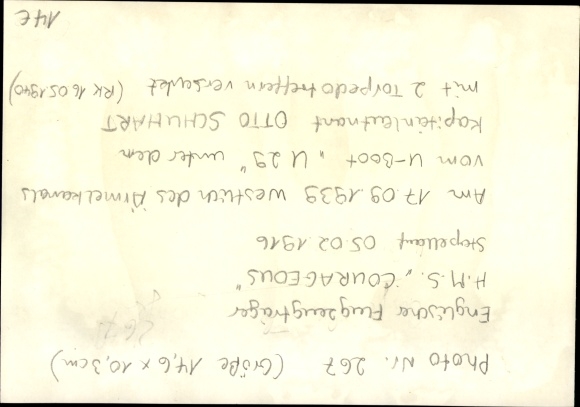 Photo Nr. 267 (Größe 14,6 x 10,3cm)
Englischer Flugzeugträger
H.M.S. „COURAGEOUS"
Stapellauf 05.02.1916
Am 17.09.1939 westlich des Ärmelkanals
vom U-Boot „U 29" unter dem
Kapitänleutnant OTTO SCHUHART
mit 2 Torpedotreffern versenkt (RK 16.05.1940)
14€